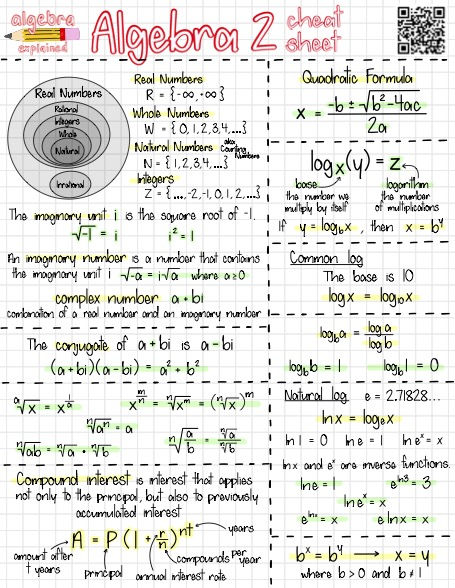 algebra
explained
Algebra 2 cheat sheet
Real Numbers
Rational
Integers
Whole
Natural
Irrational
Real Numbers
R = {-∞, +∞}
Whole Numbers
W = {0, 1, 2, 3, 4, ...}
Natural Numbers aka Counting Numbers
N = {1, 2, 3, 4, ...}
Integers
Z = {..., -2, -1, 0, 1, 2, ...}
The imaginary unit i is the square root of -1.
√-1 = i i² = -1
An imaginary number is a number that contains
the imaginary unit i √-a = i√a where a ≥ 0
complex number a + bi
combination of a real number and an imaginary number
The conjugate of a + bi is a - bi
(a + bi)(a - bi) = a² + b²
ᵃ√x = x^(1/a) x^(m/n) = ⁿ√xᵐ = (ⁿ√x)ᵐ
ⁿ√aⁿ = a
ⁿ√ab = ⁿ√a · ⁿ√b ⁿ√(a/b) = ⁿ√a / ⁿ√b
Compound interest is interest that applies
not only to the principal, but also to previously
accumulated interest
A = P(1 + r/n)^(nt)
years
amount after
t years
principal
annual interest rate
compounds per year
Quadratic Formula
x = (-b ± √(b² - 4ac)) / 2a
logₓ(y) = z
base
the number we
multiply by itself
logarithm
the number
of multiplications
If y = log_b x, then x = b^y
Common log
The base is 10
log x = log₁₀x
log_b a = log a / log b
log_b b = 1 log_b 1 = 0
Natural log e = 2.71828...
ln x = logₑx
ln 1 = 0 ln e = 1 ln eˣ = x
ln x and eˣ are inverse functions.
ln e = 1 e^(ln 3) = 3
ln eˣ = x
e^(ln x) = x e ln x = x
bˣ = b^y → x = y
where b > 0 and b ≠ 1